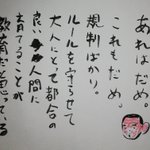 あれはだめ。
これもだめ。
規制ばかり。
ルールを守らせて
大人にとって都合の
良い人間に
育てることが
教育だと思っている